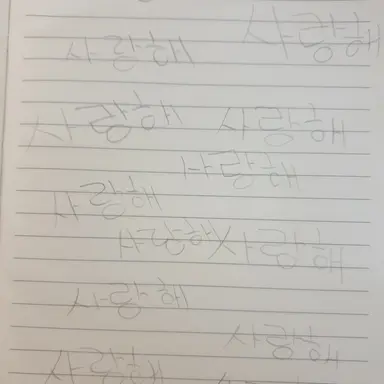 사랑해
사랑해
사랑해
사랑해
사랑해
사랑해
사랑해 사랑해
사랑해
사랑해
사랑해